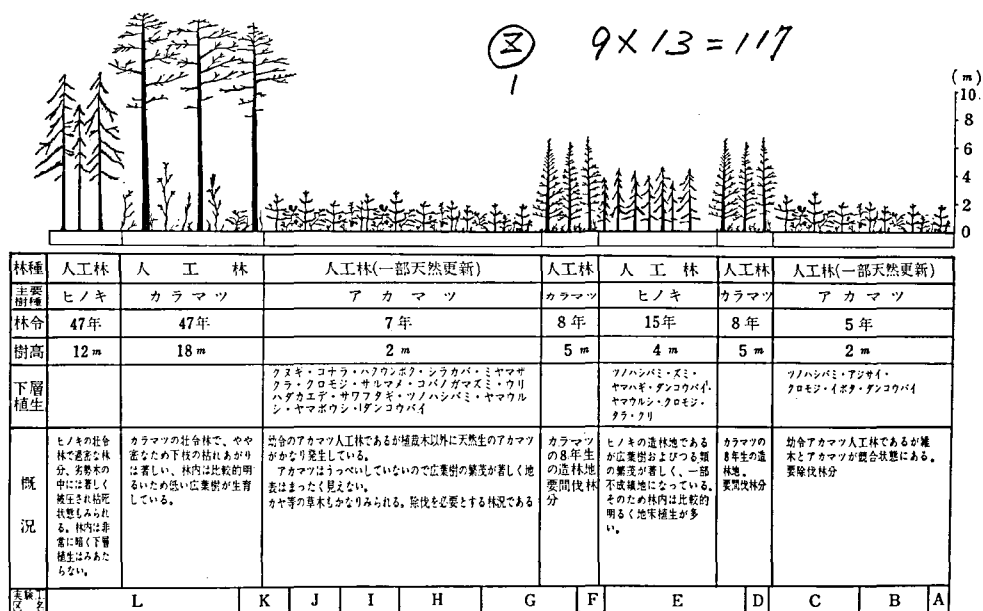 図1 9×13=117
(m)
10
8
6
4
2
0
林種 人工林 人工林 人工林(一部天然更新) 人工林 人工林 人工林 人工林(一部天然更新)
主要樹種 ヒノキ カラマツ アカマツ カラマツ ヒノキ カラマツ アカマツ
林令 47年 47年 7年 8年 15年 8年 5年
樹高 12m 18m 2m 5m 4m 5m 2m
下層植生
クヌギ・コナラ・ハクウンボク・シラカバ・ミヤマザ
クラ・クロモジ・サルマメ・コバノガマズミ・ウリ
ハダカエデ・サワフタギ・ツノハシバミ・ヤマウル
シ・ヤマボウシ・ダンコウバイ
ツノハシバミ・ズミ・
ヤマハギ・ダンコウバイ・
ヤマウルシ・クロモジ・
タラ・クリ
ツノハシバミ・アジサイ・
クロモジ・イボタ・ダンコウバイ
概況
ヒノキの壮令
林で過密な林
分、劣勢木の
中には著しく
被圧され枯死
状態もみられ
る。林内は非
常に暗く下層
植生はみあた
らない。
カラマツの壮令林で、やや
密なため下枝の枯れあがり
は著しい、林内は比較的明
るいため低い広葉樹が生育
している。
幼令のアカマツ人工林であるが植栽木以外に天然生のアカマツ
がかなり発生している。
アカマツはうっぺいしていないので広葉樹の繁茂が著しく地
表はまったく見えない。
カヤ等の草木もかなりみられる。除伐を必要とする林況である
カラマツ
の8年生
の造林地
要間伐林
分
ヒノキの造林地である
が広葉樹およびつる類
の繁茂が著しく、一部
不成績地になっている。
そのため林内は比較的
明るく地床植生が多
い。
カラマツの
8年生の造
林地。
要間伐林分
幼令アカマツ人工林であるが雑
木とアカマツが競合状態にある。
要除伐林分
実験工区名 L K J I H G F E D C B A